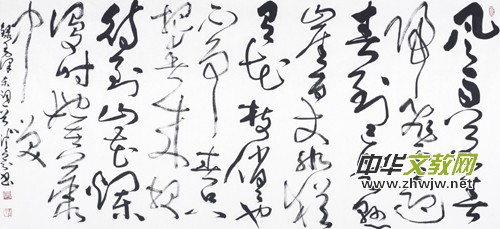 风雨送春
归飞雪迎
春到已是悬
崖百丈冰犹
有花枝俏也
不争春只
把春来报
待到山花烂
漫时她在丛
中笑
录毛泽东
中华文教网
www.zhwjw.net